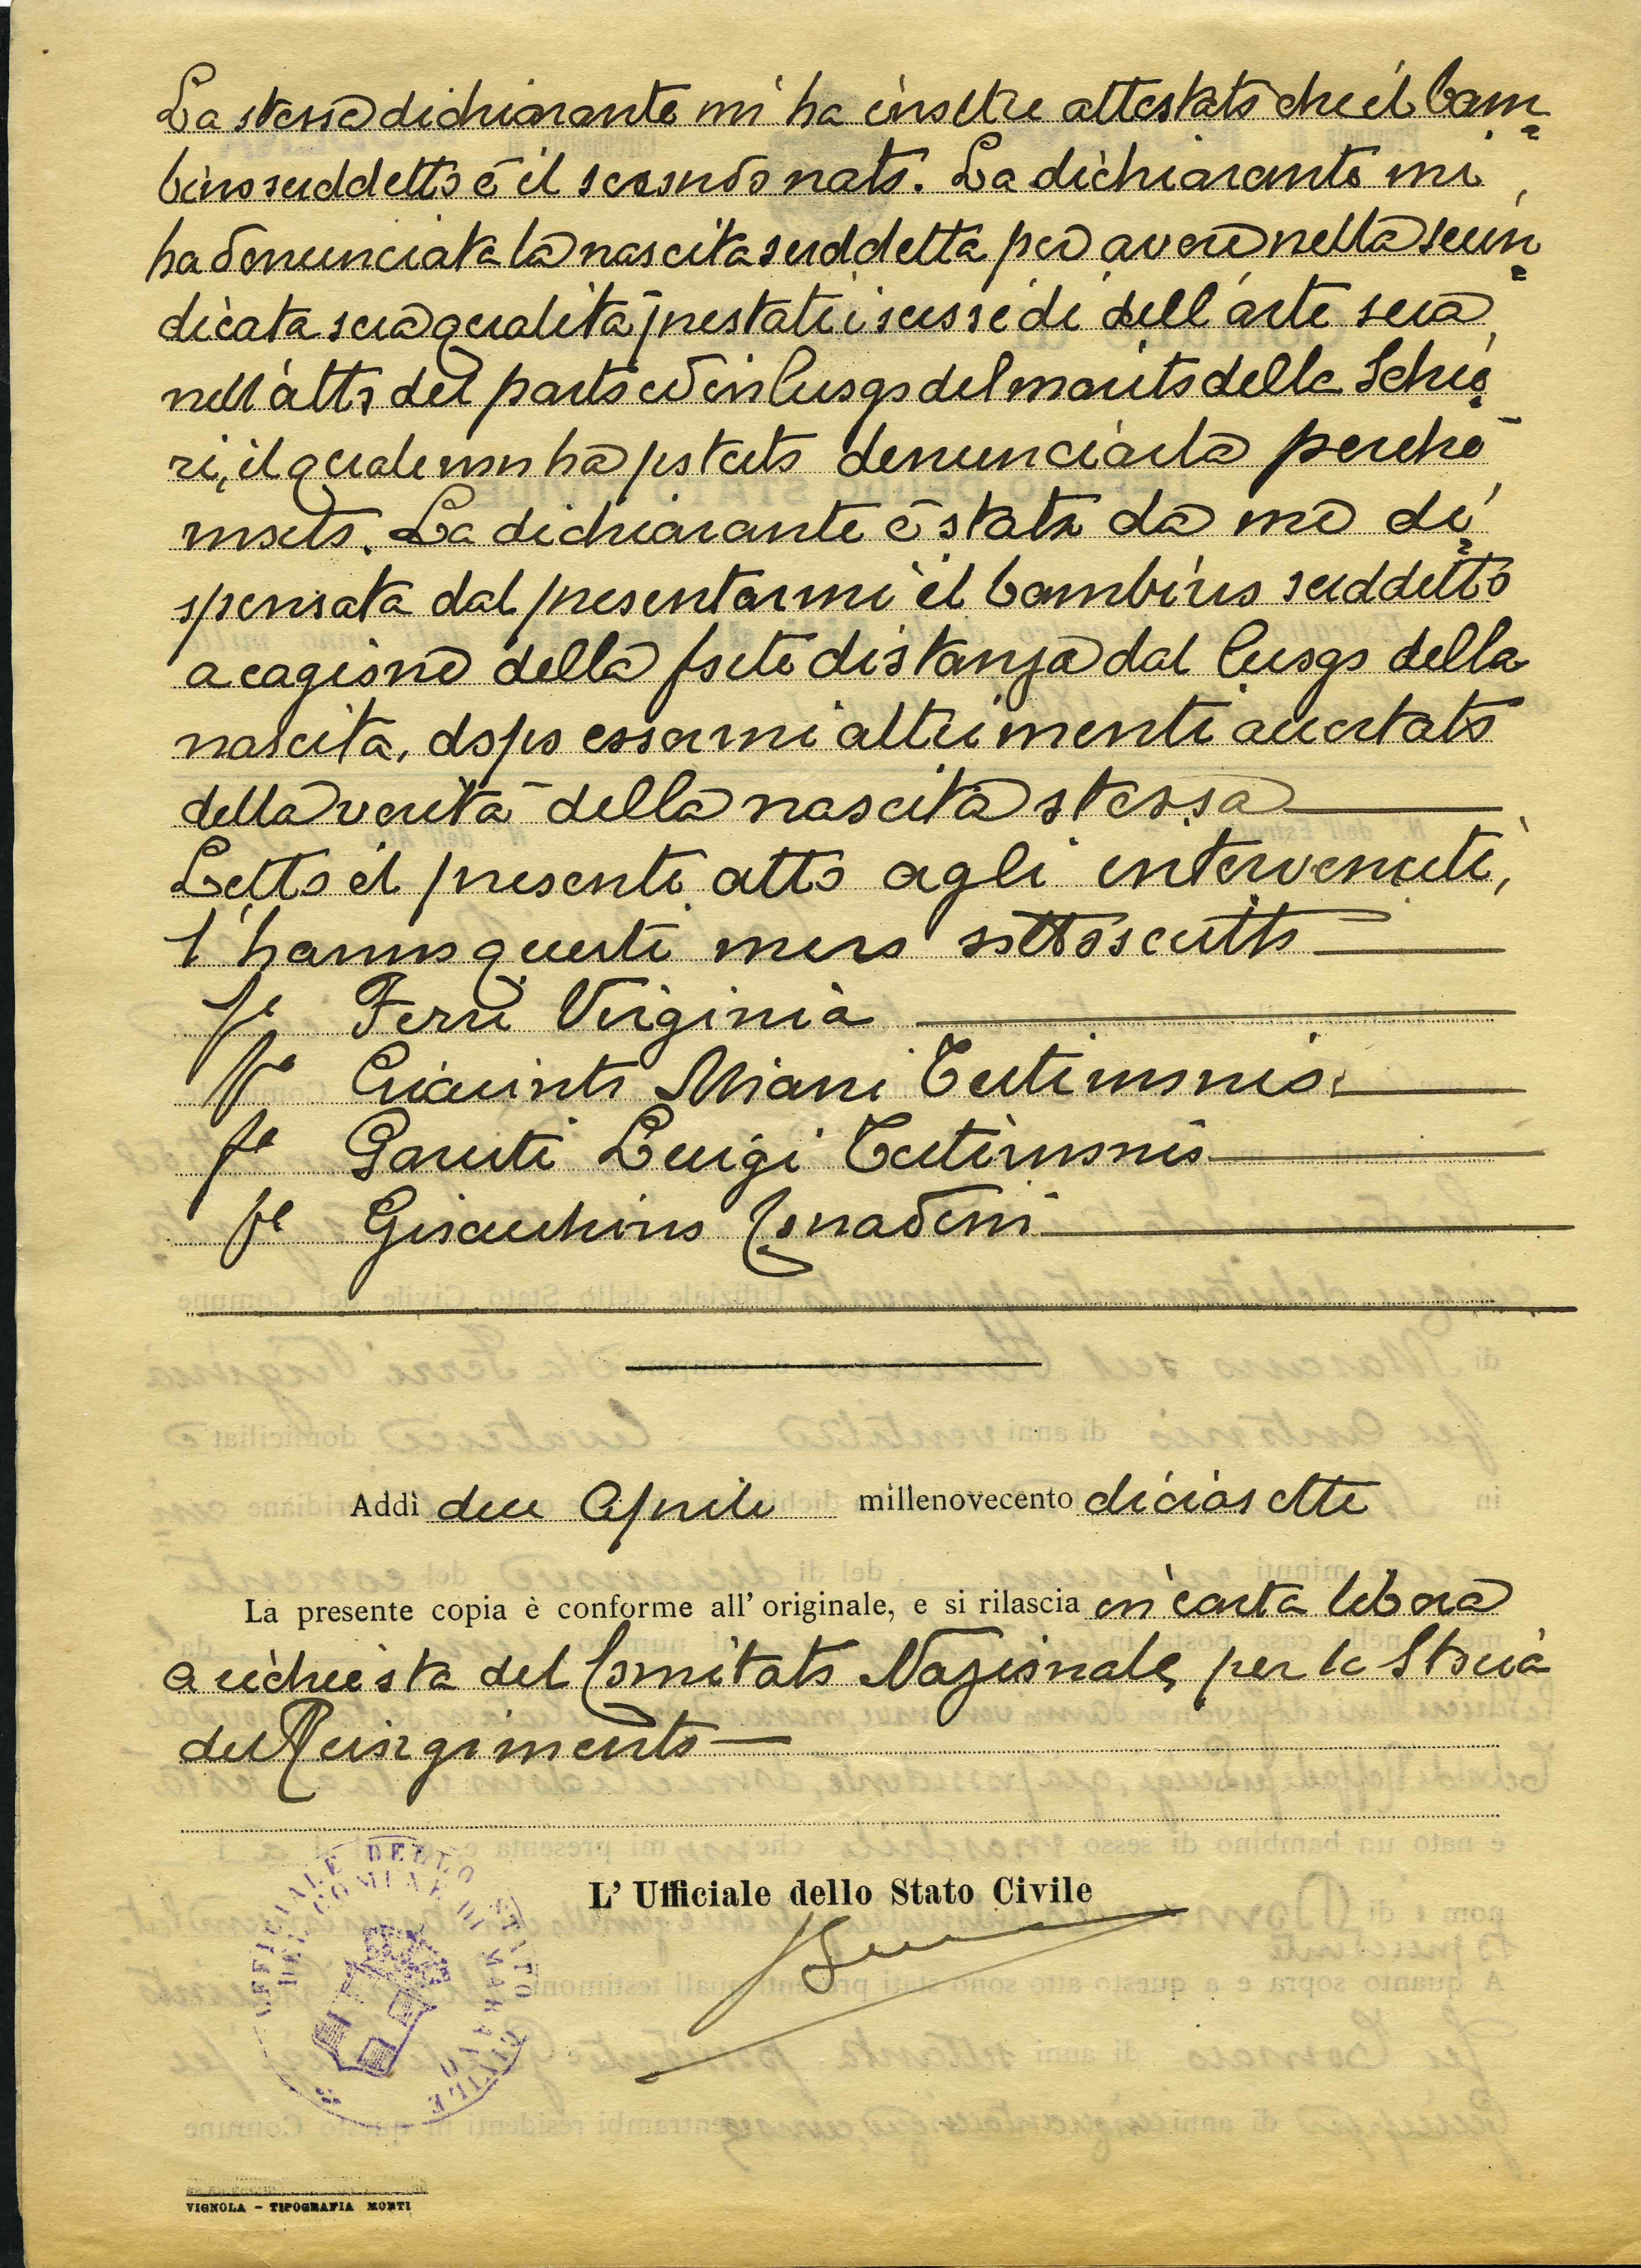 La stessa dichiarante mi ha inoltre attestato che il bam=
bino suddetto è il secondo nato. La dichiarante mi
ha denunciata la nascita suddetta per avere nella suin=
dicata sua qualità prestati i sussidi dell'arte sua
nell'atto del parto ed in luogo del marito della Schie=
ri, il quale non ha potuto denunciarla perchè
morto. La dichiarante è stata da me di=
spensata dal presentarmi il bambino suddetto
a cagione della forte distanza dal luogo della
nascita, dopo essermi altrimenti accertato
della verità della nascita stessa
Letto il presente atto agli intervenuti,
l'hanno questi meco sottoscritto
fo Ferri Virginia
fo Giacinto Miani Testimonio
fo Garuti Luigi Testimonio
fo Gioacchino Conadini
Addì due Aprile millenovecento diciasette
La presente copia è conforme all'originale, e si rilascia in carta libera
a richiesta del Comitato Nazionale per la Storia
del Risorgimento
L'Ufficiale dello Stato Civile
UFFICIALE DELLO STATO CIVILE
DEL COMUNE DI MARANO
VIGNOLA - TIPOGRAFIA MONTI